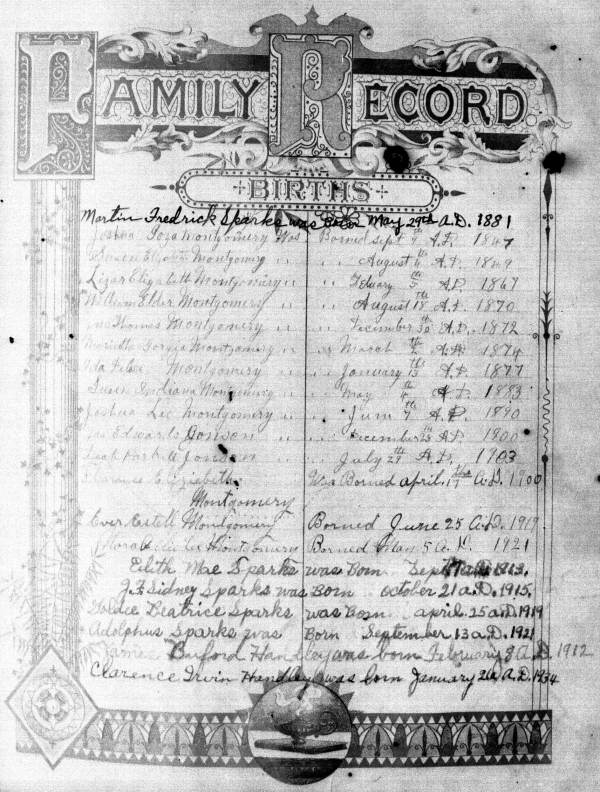 FAMILY RECORD
BIRTHS
Martin Fredrick Sparks was Born May 29th A.D. 1881
Joshua Montgomery Was Borned Sept 9th A.D. 1847
Montgomery " " August 4th A.D. 1849
Lizar Elizabeth Montgomery " " February 5th A.D. 1867
William Elder Montgomery " " August 18th A.D. 1870
Thomas Montgomery " " December 30th A.D. 1872
Georgia Montgomery " " March th A.D. 1874
Ada Montgomery " " January 13th A.D. 1877
Queen Indiana Montgomery " " May 4th A.D. 1883
Joshua Lee Montgomery " " June 7th A.D. 1890
Edwards " " December 25th A.D. 1900
" " July 29th A.D. 1903
Elizebeth Was Borned april. 17th A.D. 1900
Montgomery
Ever Estell Montgomery Borned June 25 A.D. 1919.
Montgomery Borned May 5 A.D. 1921
Edith Mae Sparks was Born Sept A.D. 1913.
J.F Sidney Sparks was Born october 21 a.D. 1915.
Goldie Beatrice Sparks was Born april. 25 a.D 1919
Adolphus Sparks was Born September 13 a.D. 1921
James Buford Handley was born February 8 A.D. 1912
Clarence Irvin Handley was born January 26 A.D. 1934